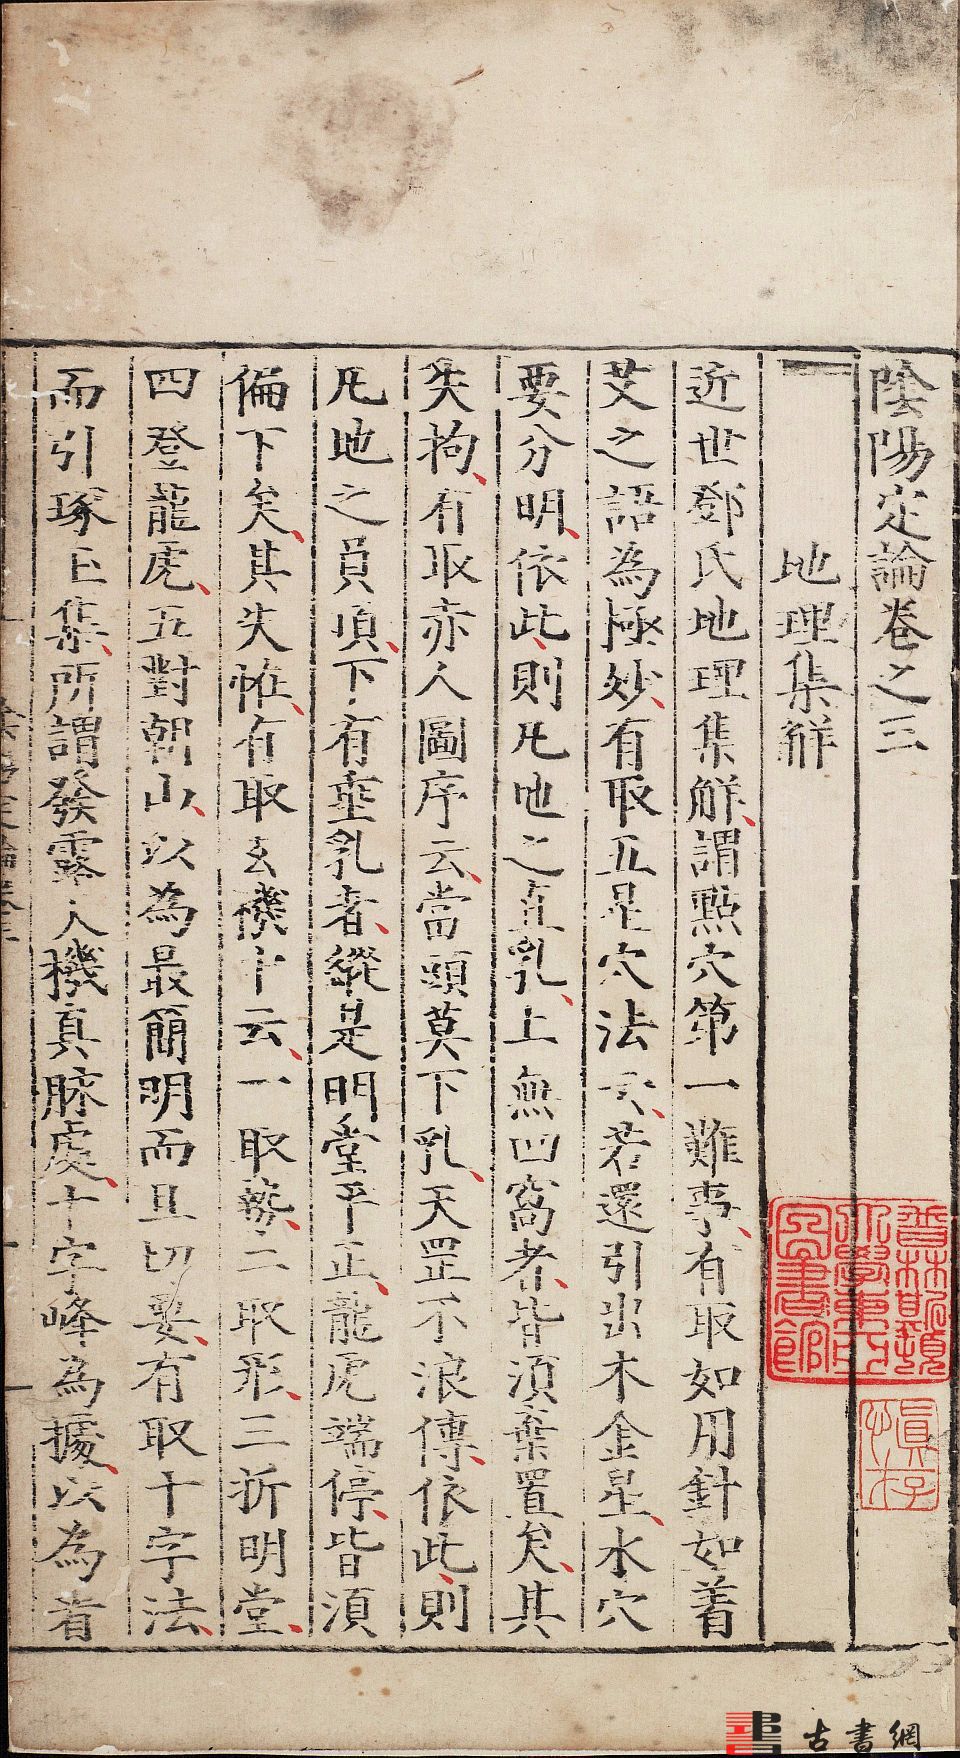 陰陽定論卷之三
地理集觧
近世鄧氏地理集觧謂點穴第一難事有取如用針如着
艾之語為極妙有取五星穴法云若還引出木金星水穴
要分明依此則凡地之直乳上無凹窩者皆須棄置矣其
失拘有取赤人圖序云當頭莫下乳天罡不浪傳依此則
凡地之員項下有垂乳者縱是明堂平正龍虎端停皆須
偏下矣其失怪有取玄機中云一取勢二取形三折明堂
四登龍虎五對朝山以為最簡明而且切要有取十字法
而引琢玉集所謂發露人機真脉處十字峰為據以為看
普林斯頓大學東亞圖書館
慎存
古書網